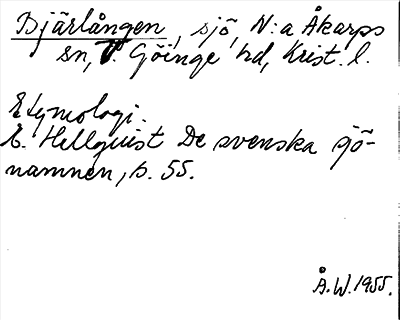 Bjärlången, sjö, N:a Åkarps
sn, V. Göinge hd, Krist. l.
Etymologi.
E. Hellquist De svenska sjö-
namnen, s. 55.
Å.W. 1955.